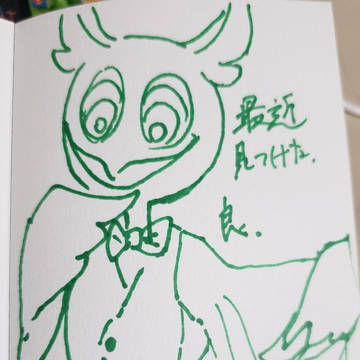 最近
見つけた.
良.